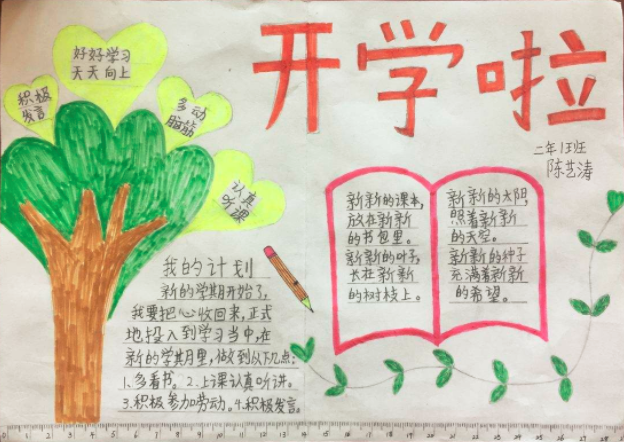 开学啦
二年1班
陈艺涛
好好学习
天天向上
积极
发言
多动
脑筋
认真
听课
新新的课本,
放在新新
的书包里。
新新的叶子,
长在新新
的树枝上。
新新的太阳,
照着新新
的天空。
新新的种子
充满着新新
的希望。
我的计划
新的学期开始了,
我要把心收回来,正式
地投入到学习当中,在
新的学期里,做到以下几点:
1.多看书。2.上课认真听讲。
3.积极参加劳动。4.积极发言。
0 1 2 3 4 5 6 7 8 9 10 11 12 13 14 15 16 17 18 19 20 21 22 23 24 25 26 27 28